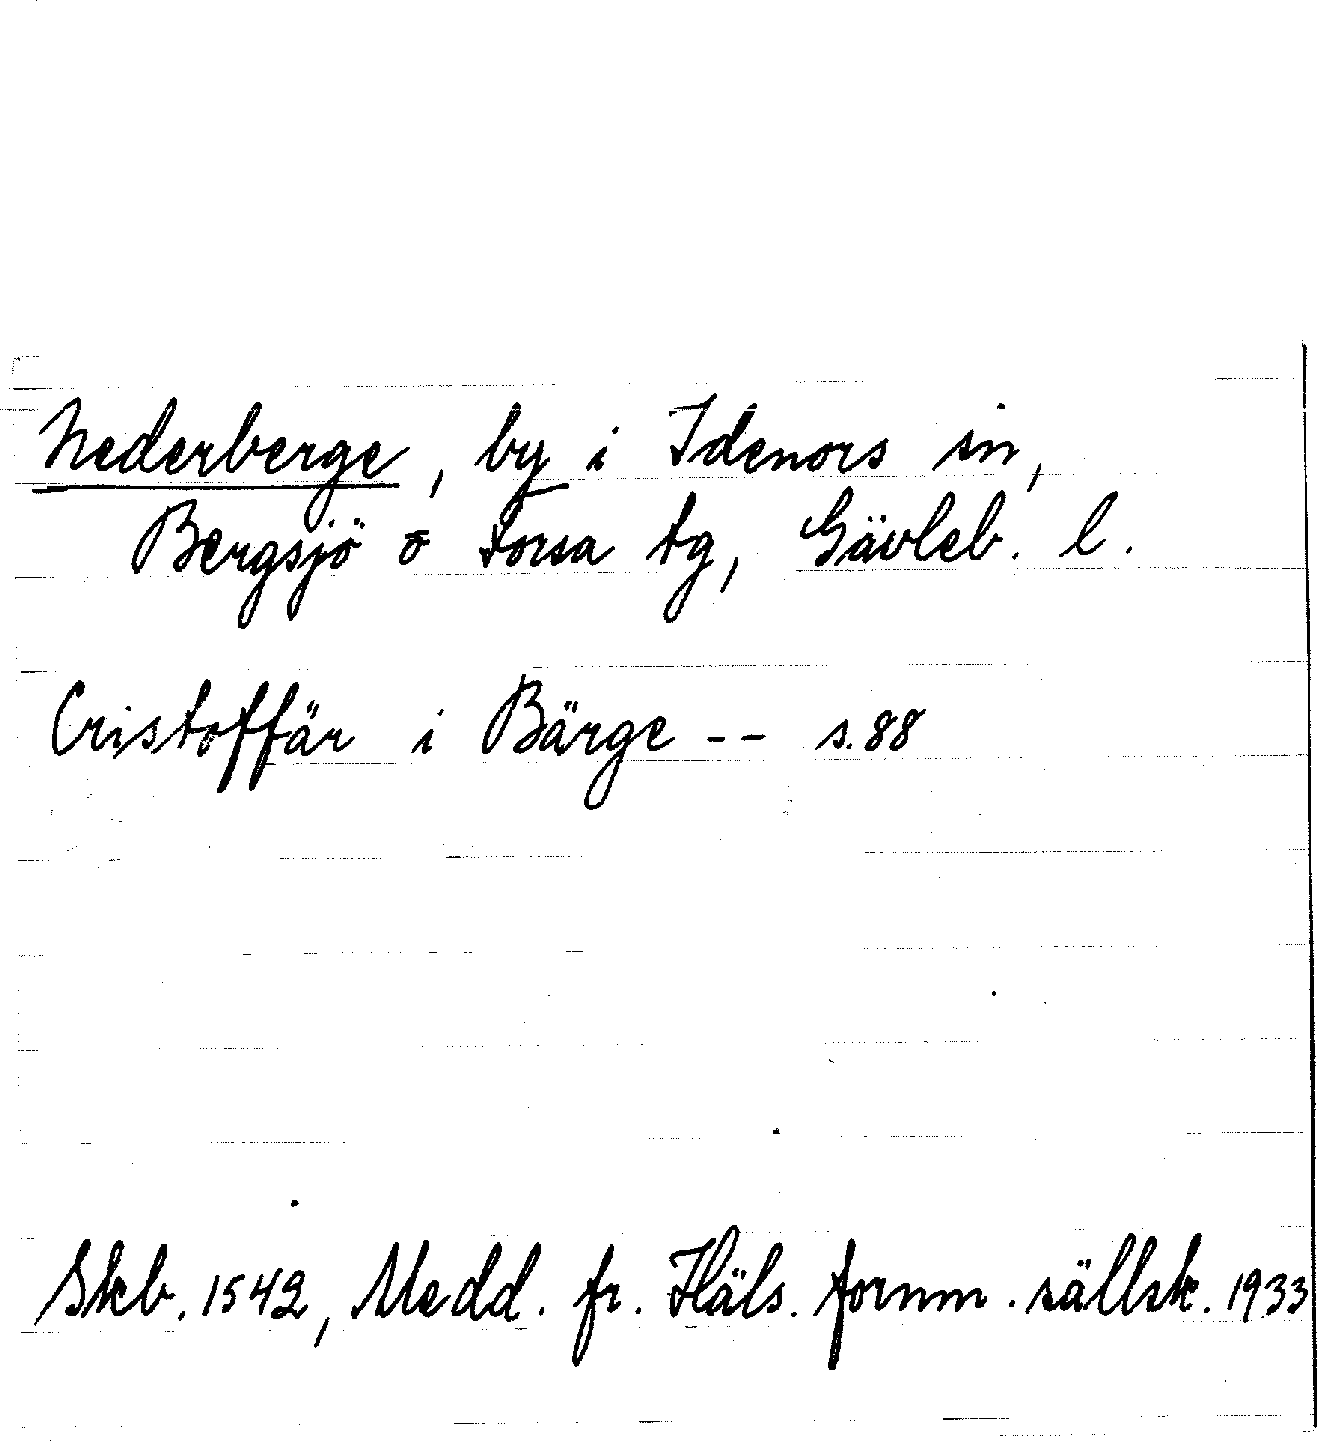 Nederberge, by i Idenors sn,
Bergsjö o Forsa tg, Gävleb. l.
Cristoffär i Bärge -- s. 88
Skb. 1542, Medd. fr. Häls. fornm. sällsk. 1933